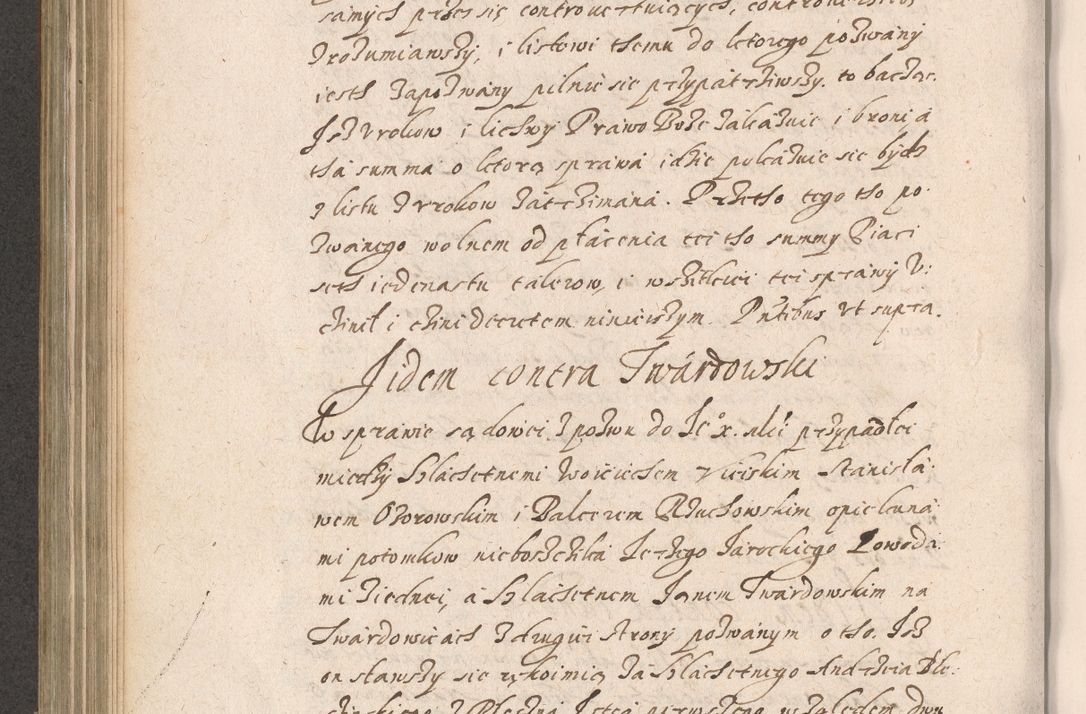 samych przes się controuertuiących, controuersiey
Zrozumiawszy, i listowi themu do ktorego pozwany
iesth Zapozwany pilnie sie przypatrziwszy. to bacząc.
Isz Vrokow i lichwy Prawo Boże Zakazuie i broni á
thá summa o ktorą sprawá idzie pokazuie sie bydz
z listu Z Vrokow Zatrzimana. Przetho tego tho po
Zwanego wolnem od płácenia tei tho summy Piąci
seth iedenastu talerow, i wszitkiei tei sprawy V:
cżinił i cżini decretem ninieiszym. Pntibus vt supra.
Iidem contra Twárdowski
W sprawie sądowei Z pozwu do Ie° x. mci przypadłei
miedzy Szlachetnemi Woiciechem Vieiskim Stanisła
wem Ozorowskim i Balcerem Rżuchowskim opiekuná
mi potomkow nieboszcżika Ierzego Iarockiego Powoda
mi Ziednei, a Szlachetnem Ianem Twárdowskim na
Twárdowicach Z drugiei strony pozwánym o tho. Isz
on stawszy sie rękoimią Zá Szlachetnego Andrzeia Ble: